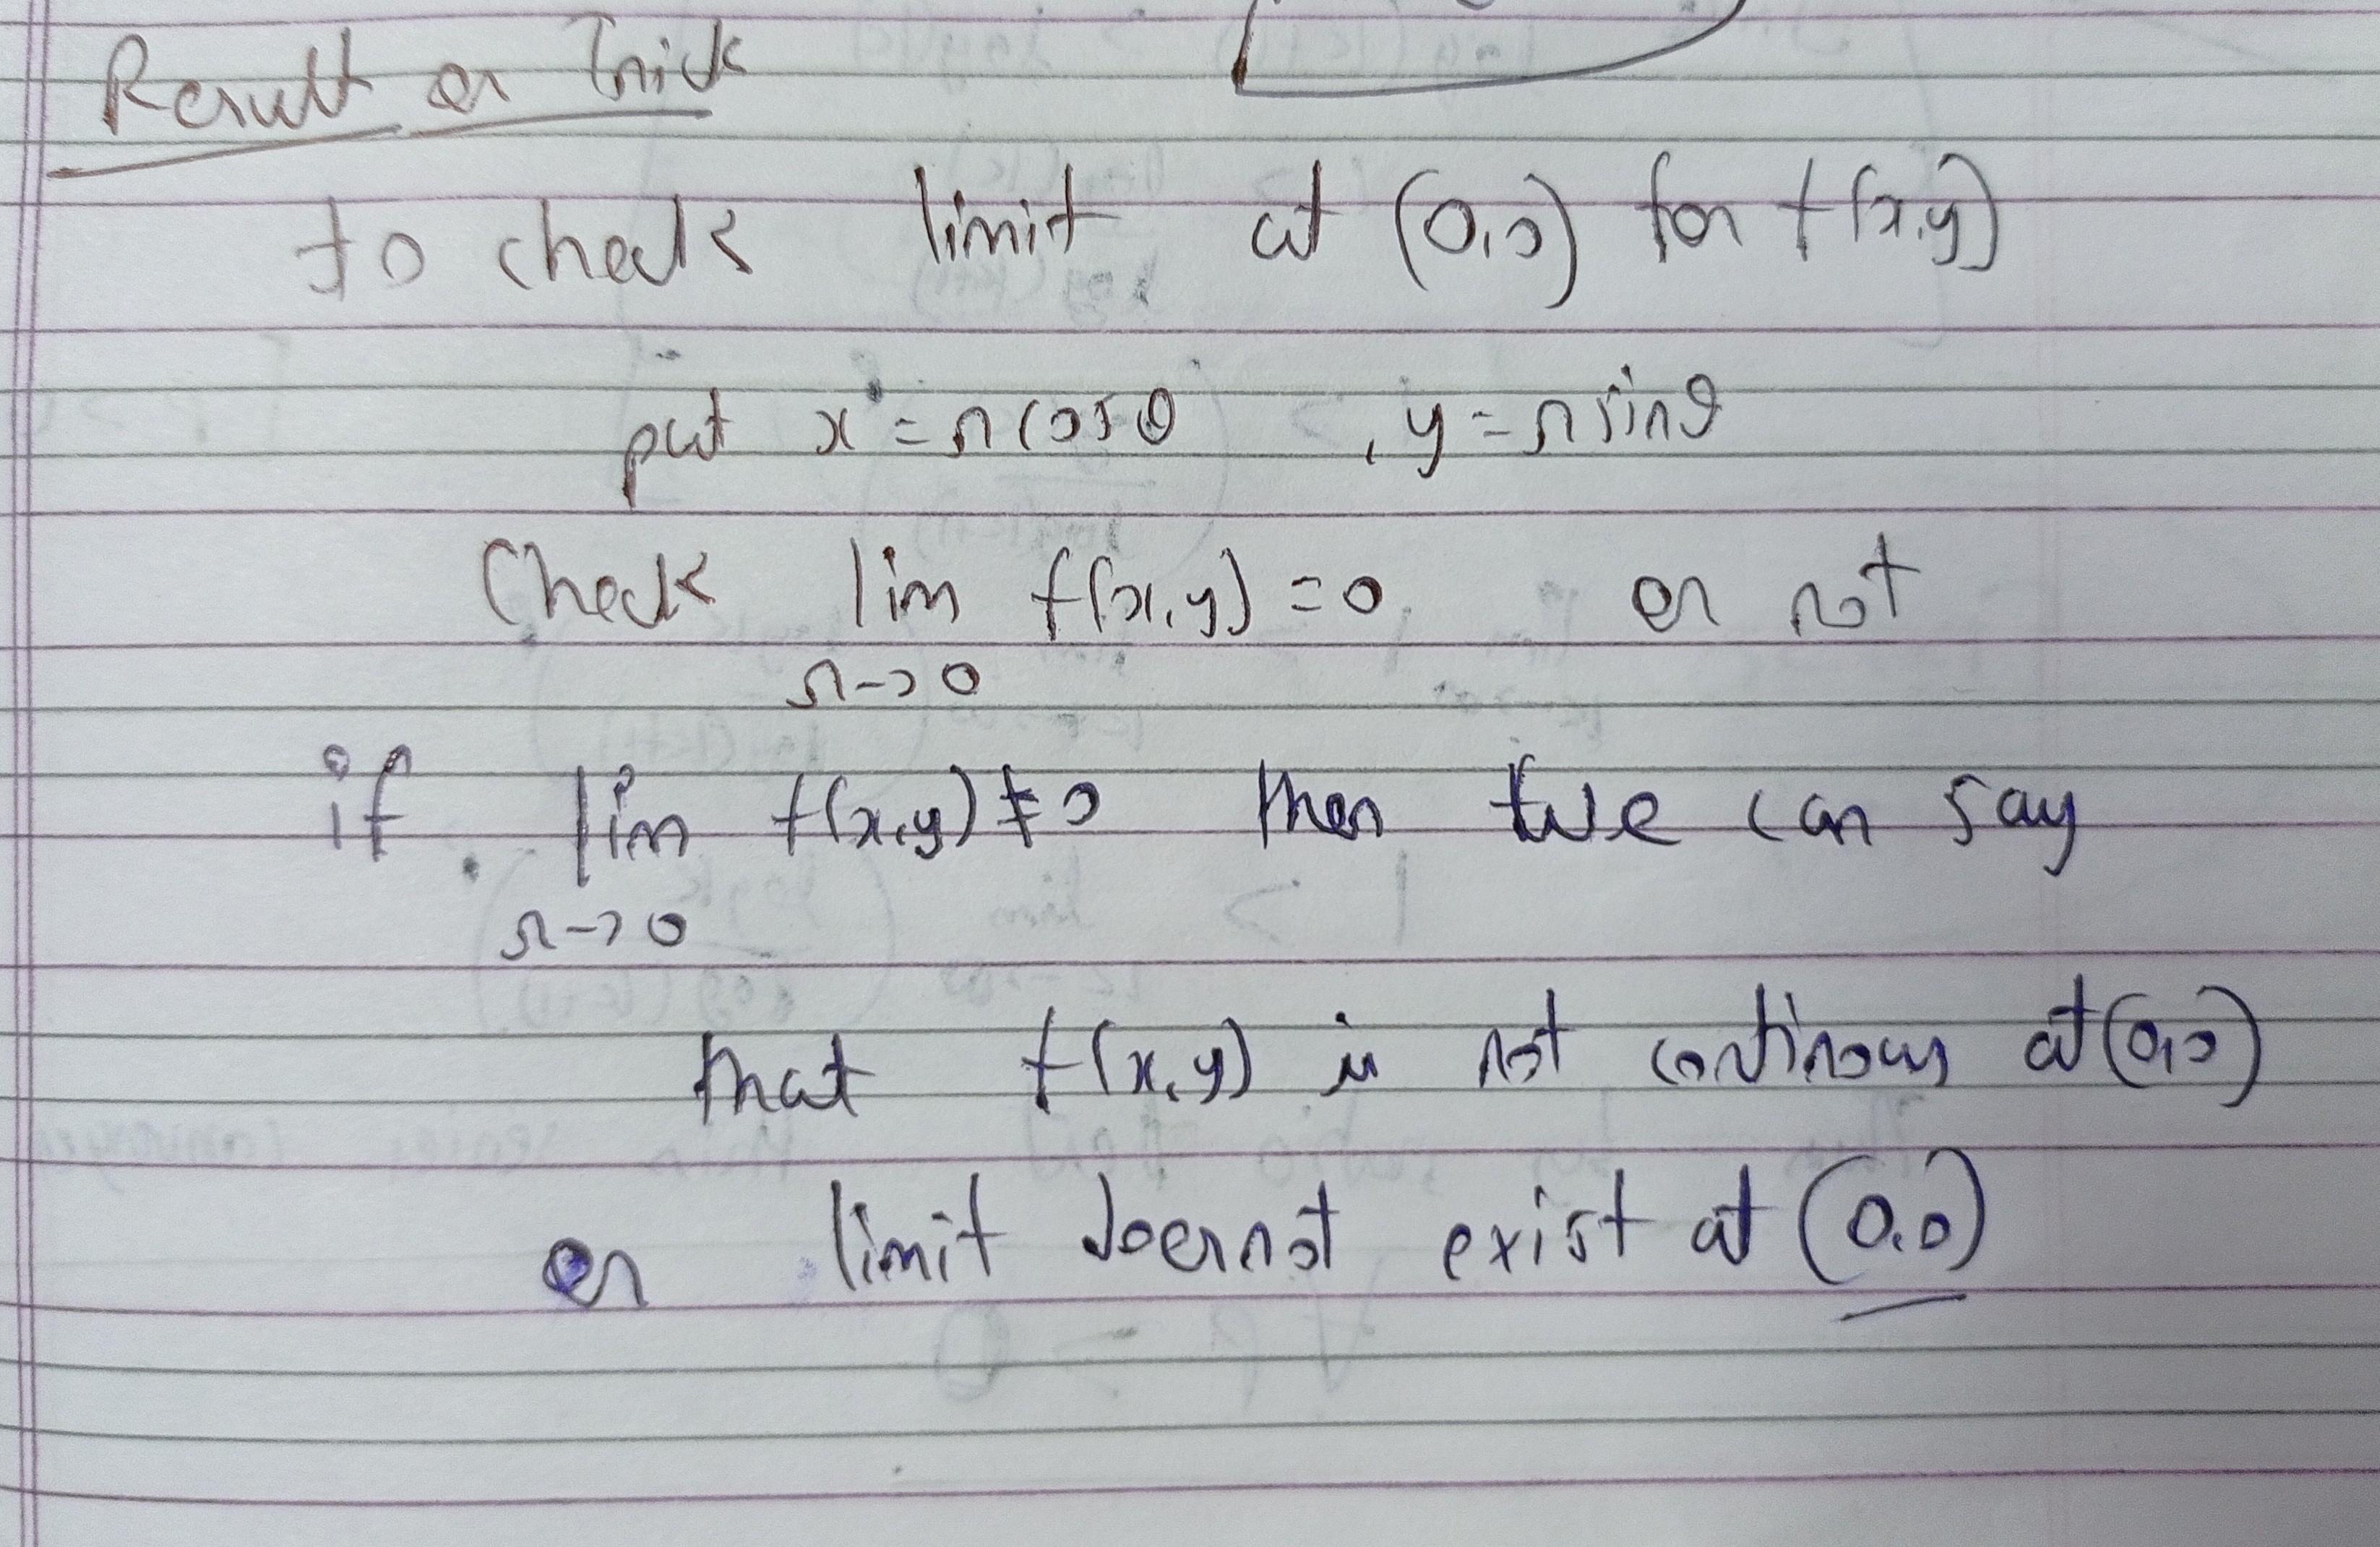 Result or Trick
to check limit at (0,0) for f(x,y)
put x = r cosθ , y = r sinθ
Check lim f(x,y) = 0 or not
r→0
if lim f(x,y) ≠ 0 then we can say
r→0
that f(x,y) is not continous at (0,0)
or limit doesnot exist at (0,0)